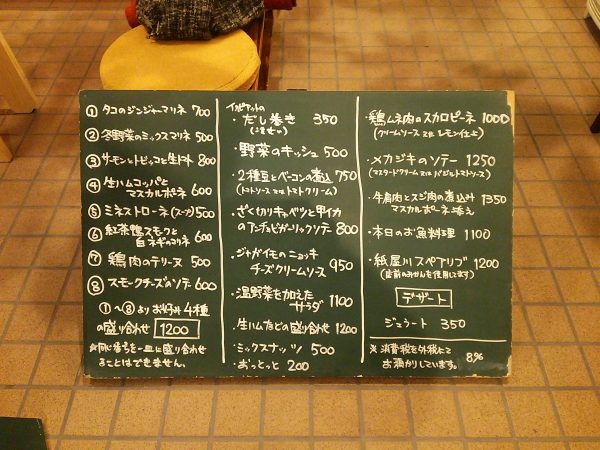 ① タコのジンジャーマリネ 700
② 冬野菜のミックスマリネ 500
③ サーモンとトビッコと生トマト 800
④ 生ハムコッパと
マスカルポーネ 600
⑤ ミネストローネ(スープ) 500
⑥ 紅茶鴨スモークと
白ネギのマリネ 600
⑦ 鶏肉のテリーヌ 500
⑧ スモークチーズのソテー 600
①〜⑧よりお好み4種
の盛り合わせ 1200
☆同じ番号を一皿に盛り合わせ
ることはできません。
・だし巻き 350
・野菜のキッシュ 500
・2種豆とベーコンの煮込 750
(トマトソース又はトマトクリーム)
・ざく切りキャベツと甲イカ
のアンチョビガーリックソテー 800
・ジャガイモのニョッキ
チーズクリームソース 950
・温野菜を加えた
サラダ 1100
・生ハムなどの盛り合わせ 1200
・ミックスナッツ 500
・おっとっと 200
・鶏ムネ肉のスカロピーネ 1000
(クリームソース又はレモン仕立)
・メカジキのソテー 1250
(マスタードクリーム又はバジルトマトソース)
・牛肩肉とスジ肉の煮込み 1350
マスカルポーネ添え
・本日のお魚料理 1100
・紙屋川スペアリブ 1200
(庭前のみかんを使用してます)
デザート
ジェラート 350
※消費税を外税にて 8%
お預かりしています。